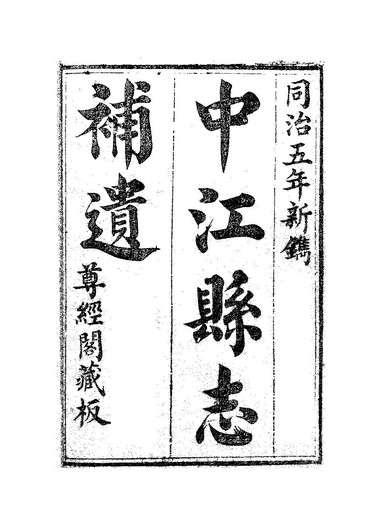 同治五年新鐫
中江縣志
補遺
尊經閣藏板